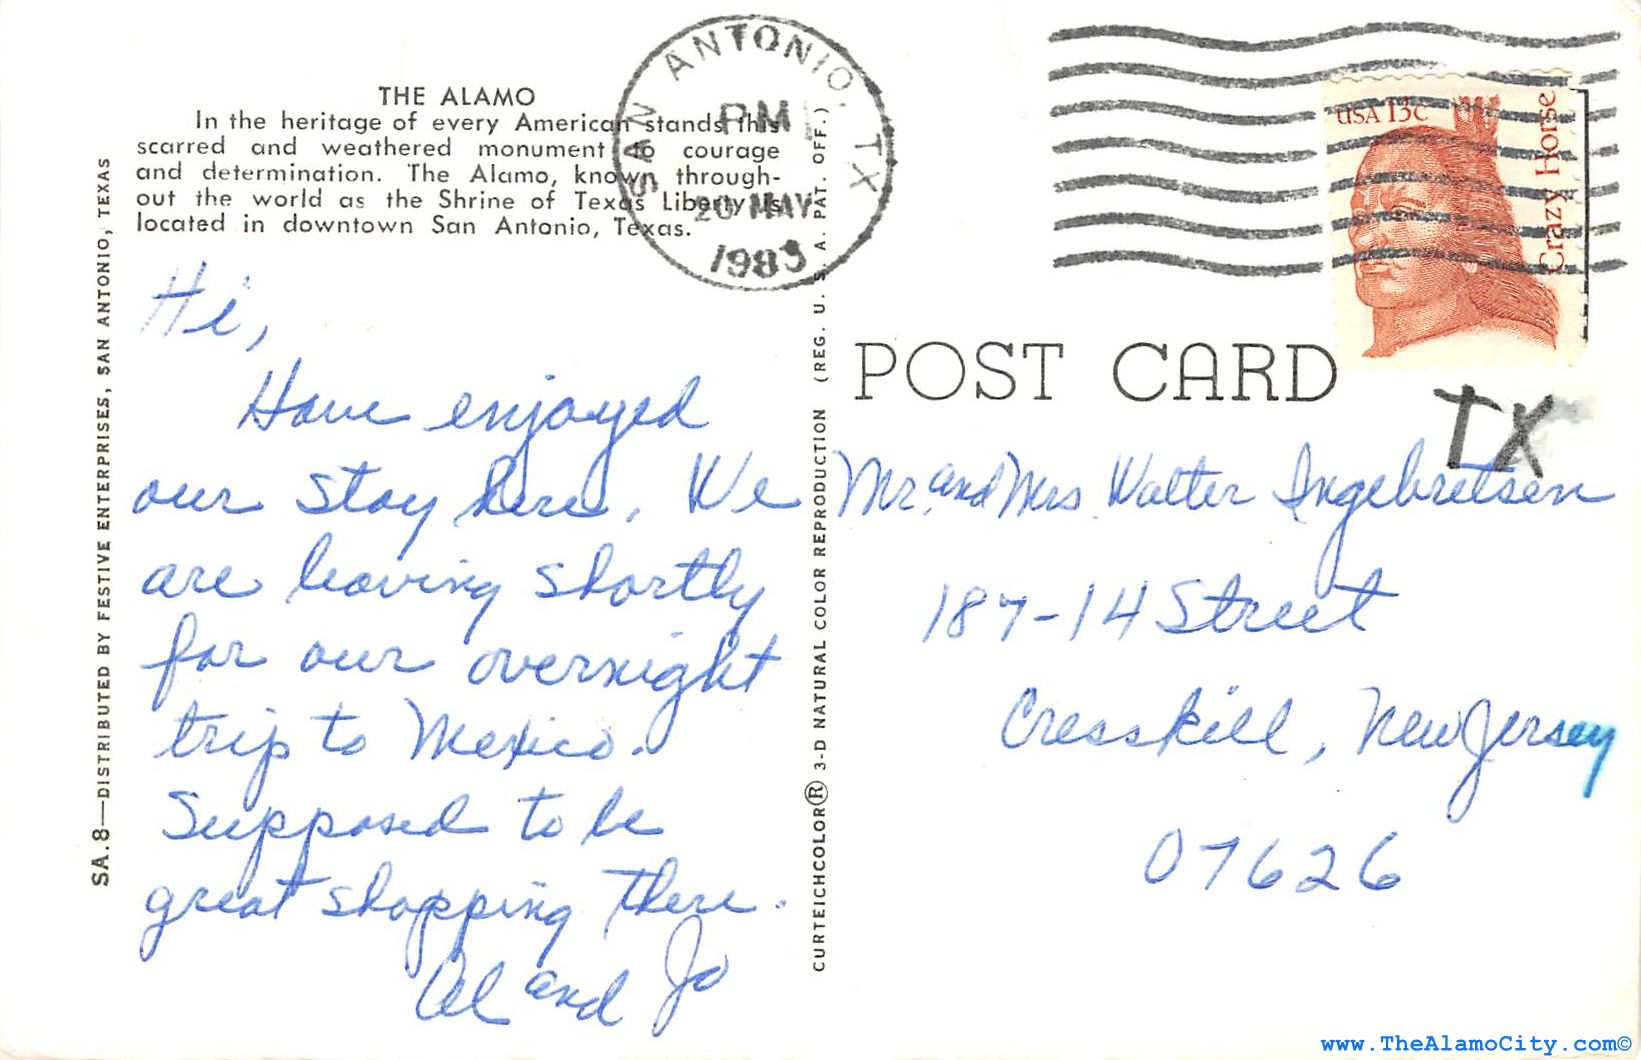 THE ALAMO
In the heritage of every American stands this
scarred and weathered monument to courage
and determination. The Alamo, known through-
out the world as the Shrine of Texas Liberty is
located in downtown San Antonio, Texas.
SAN ANTONIO, TX
PM
20 MAY
1983
USA 13c
Crazy Horse
POST CARD
TX
SA.8—DISTRIBUTED BY FESTIVE ENTERPRISES, SAN ANTONIO, TEXAS
CURTEICHCOLOR® 3-D NATURAL COLOR REPRODUCTION (REG. U. S. A. PAT. OFF.)
Hi,
Have enjoyed
our stay here. We
are leaving shortly
for our overnight
trip to Mexico.
Supposed to be
great shopping there.
Al and Jo
Mr. and Mrs. Walter Ingebretsen
187-14 Street
Cresskill, New Jersey
07626
www.TheAlamoCity.com©